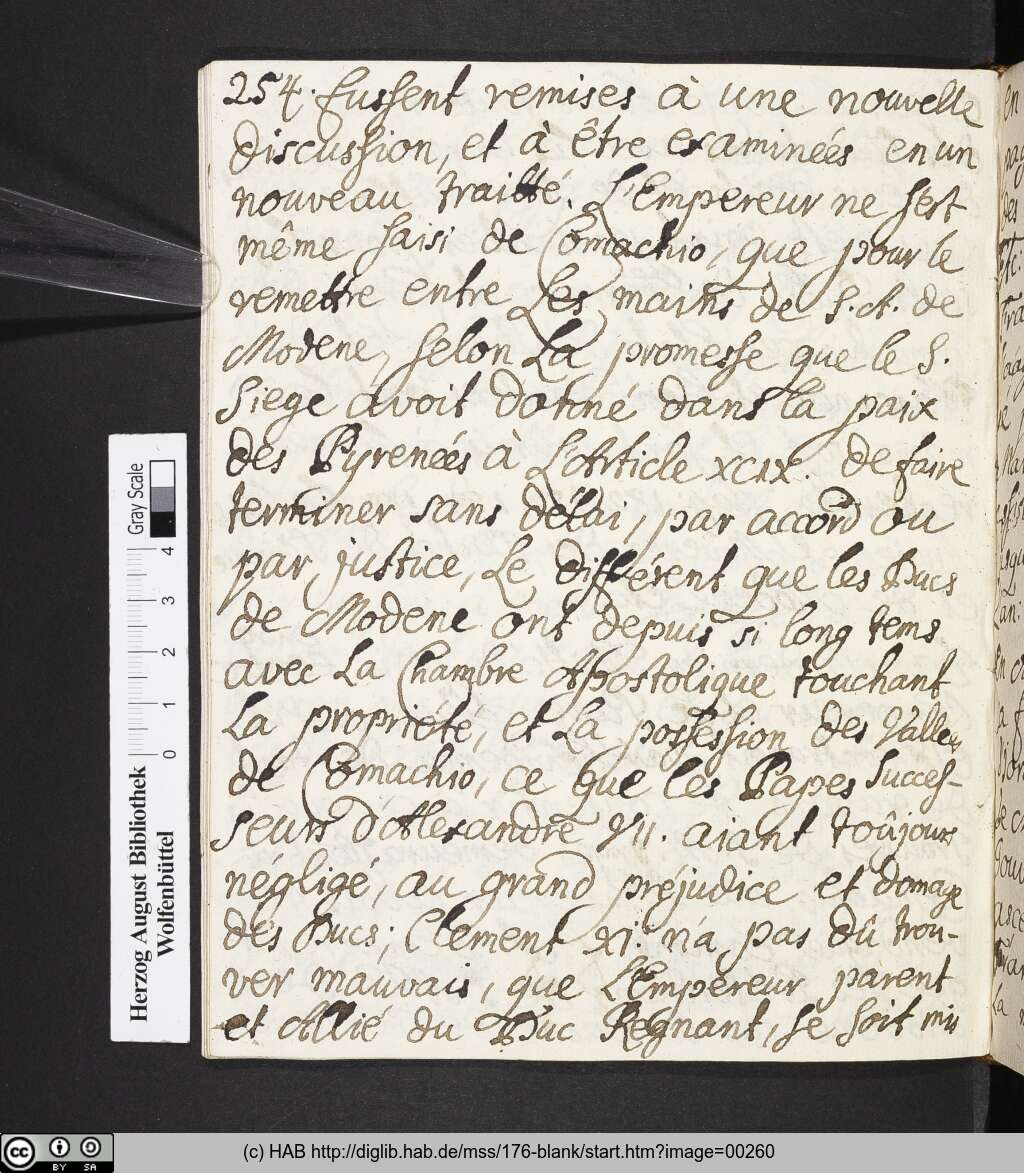 254. fussent remises à une nouvelle
discussion, et à être examineés en un
nouveau traitté. L'Empereur ne s'est
même saisi de Comachio, que pour le
remettre entre Les mains de S. A. de
Modene, selon La promesse que le S.
Siege avoit donné dans la paix
des Pyreneés à L'Article XCIX. de faire
terminer sans délai, par accord ou
par justice, Le différent que les Ducs
de Modene ont depuis si long tems
avec La Chambre Apostolique touchant
La propriété, et La possession des Vallees
de Comachio, ce que les Papes succes-
seurs d'Alexandre VII. aiant toûjours
négligé, au grand préjudice et domage
des Ducs; Clement XI. n'a pas dû trou-
ver mauvais, que L'Empereur parent
et Allié du Duc Regnant, se soit mis
Herzog August Bibliothek
Wolfenbüttel
0 1 2 3 4
Gray Scale
cc BY SA
(c) HAB http://diglib.hab.de/mss/176-blank/start.htm?image=00260